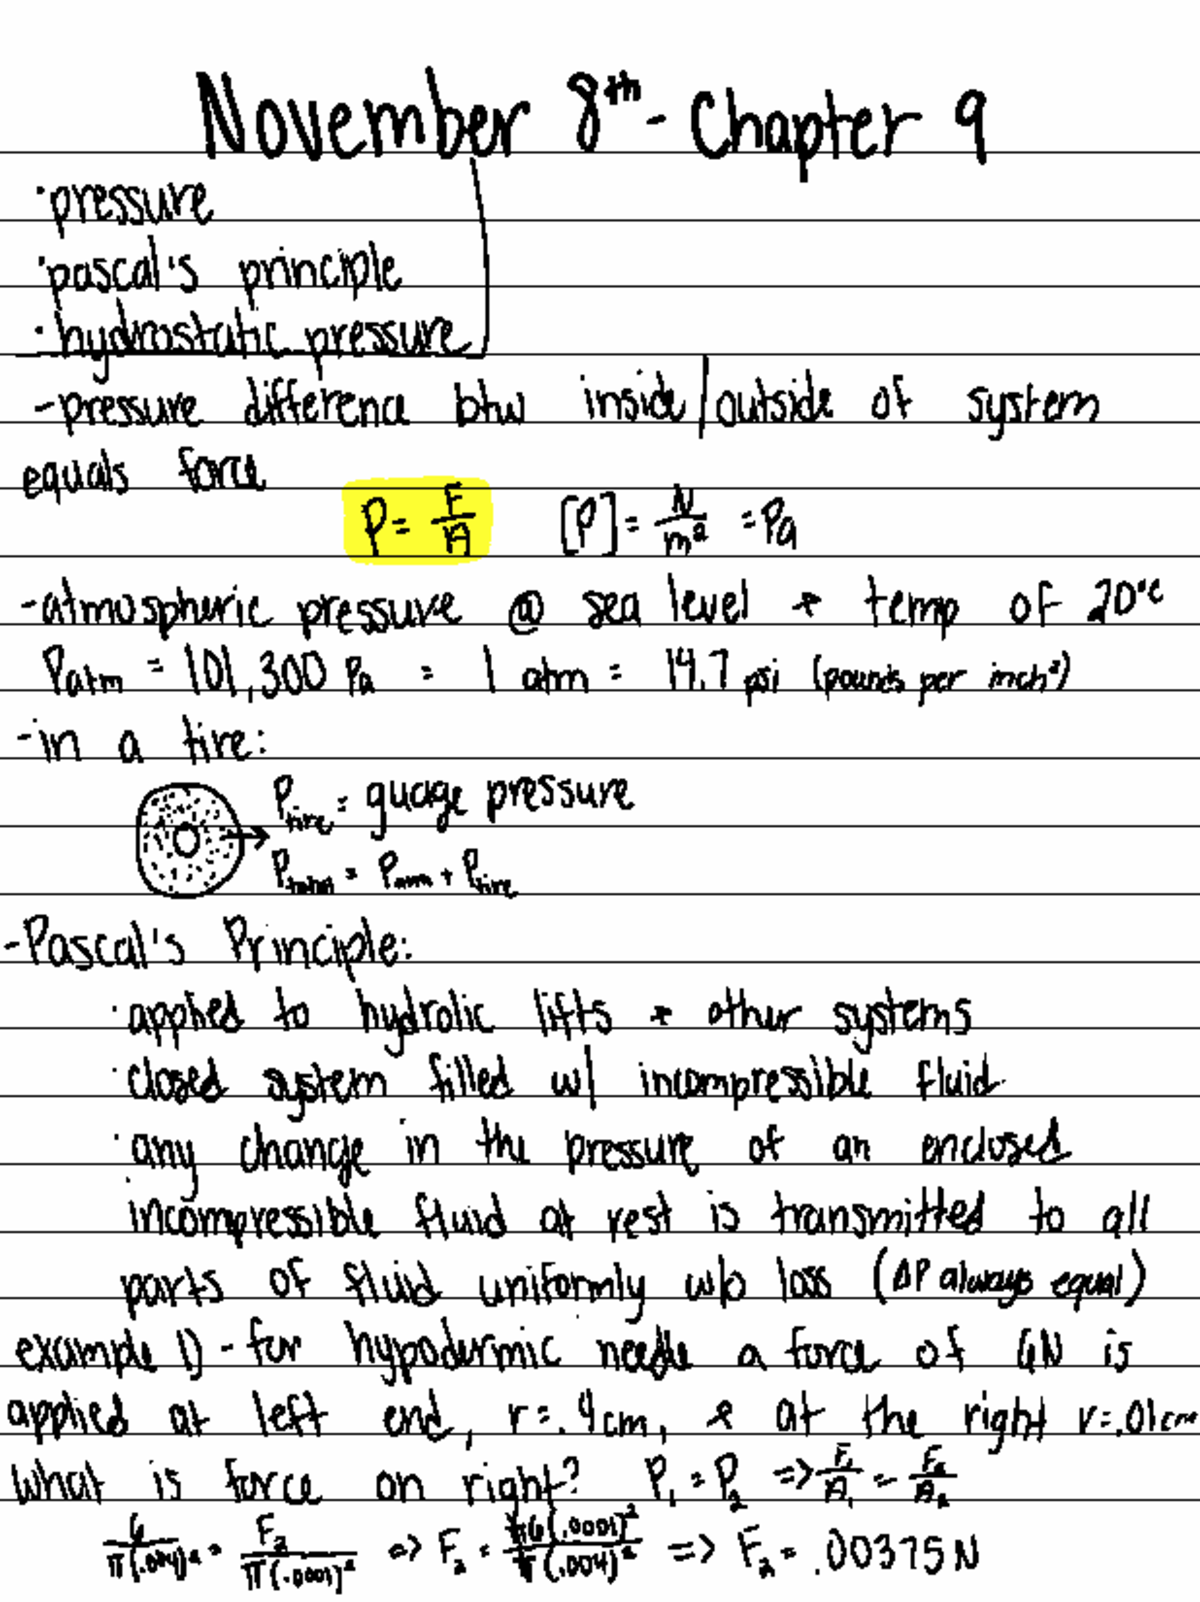 November 8th - Chapter 9
·pressure
·pascal's principle
·hydrostatic pressure
-pressure difference btw inside/outside of system
equals force
P = F/A [P] = N/m² = Pa
-atmospheric pressure @ sea level + temp of 20°c
Patm = 101,300 Pa = 1 atm = 14.7 psi (pounds per inch²)
-in a tire:
Ptire = guage pressure
Ptotal = Patm + Ptire
-Pascal's Principle:
·applied to hydrolic lifts + other systems
·closed system filled w/ incompressible fluid
·any change in the pressure of an enclosed
incompressible fluid at rest is transmitted to all
parts of fluid uniformly w/o loss (ΔP always equal)
example 1) - for hypodermic needle a force of 6N is
applied at left end, r=.4cm, & at the right r=.01cm
what is force on right? P₁ = P₂ => F₁/A₁ = F₂/A₂
6/π(.004)² = F₂/π(.0001)² => F₂ = π6(.0001)²/π(.004)² => F₂ = .00375N